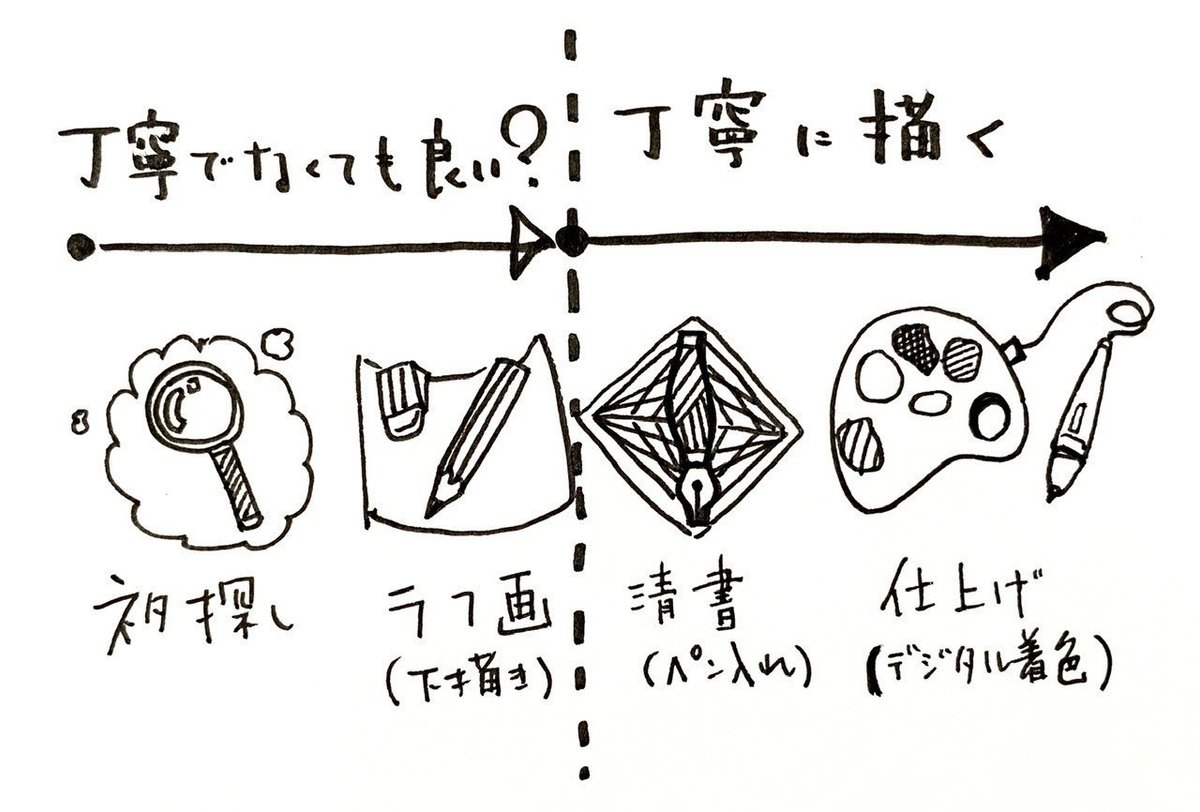 丁寧でなくても良い?
丁寧に描く
ネタ探し
ラフ画
(下書き描き)
清書
(ペン入れ)
仕上げ
(デジタル着色)